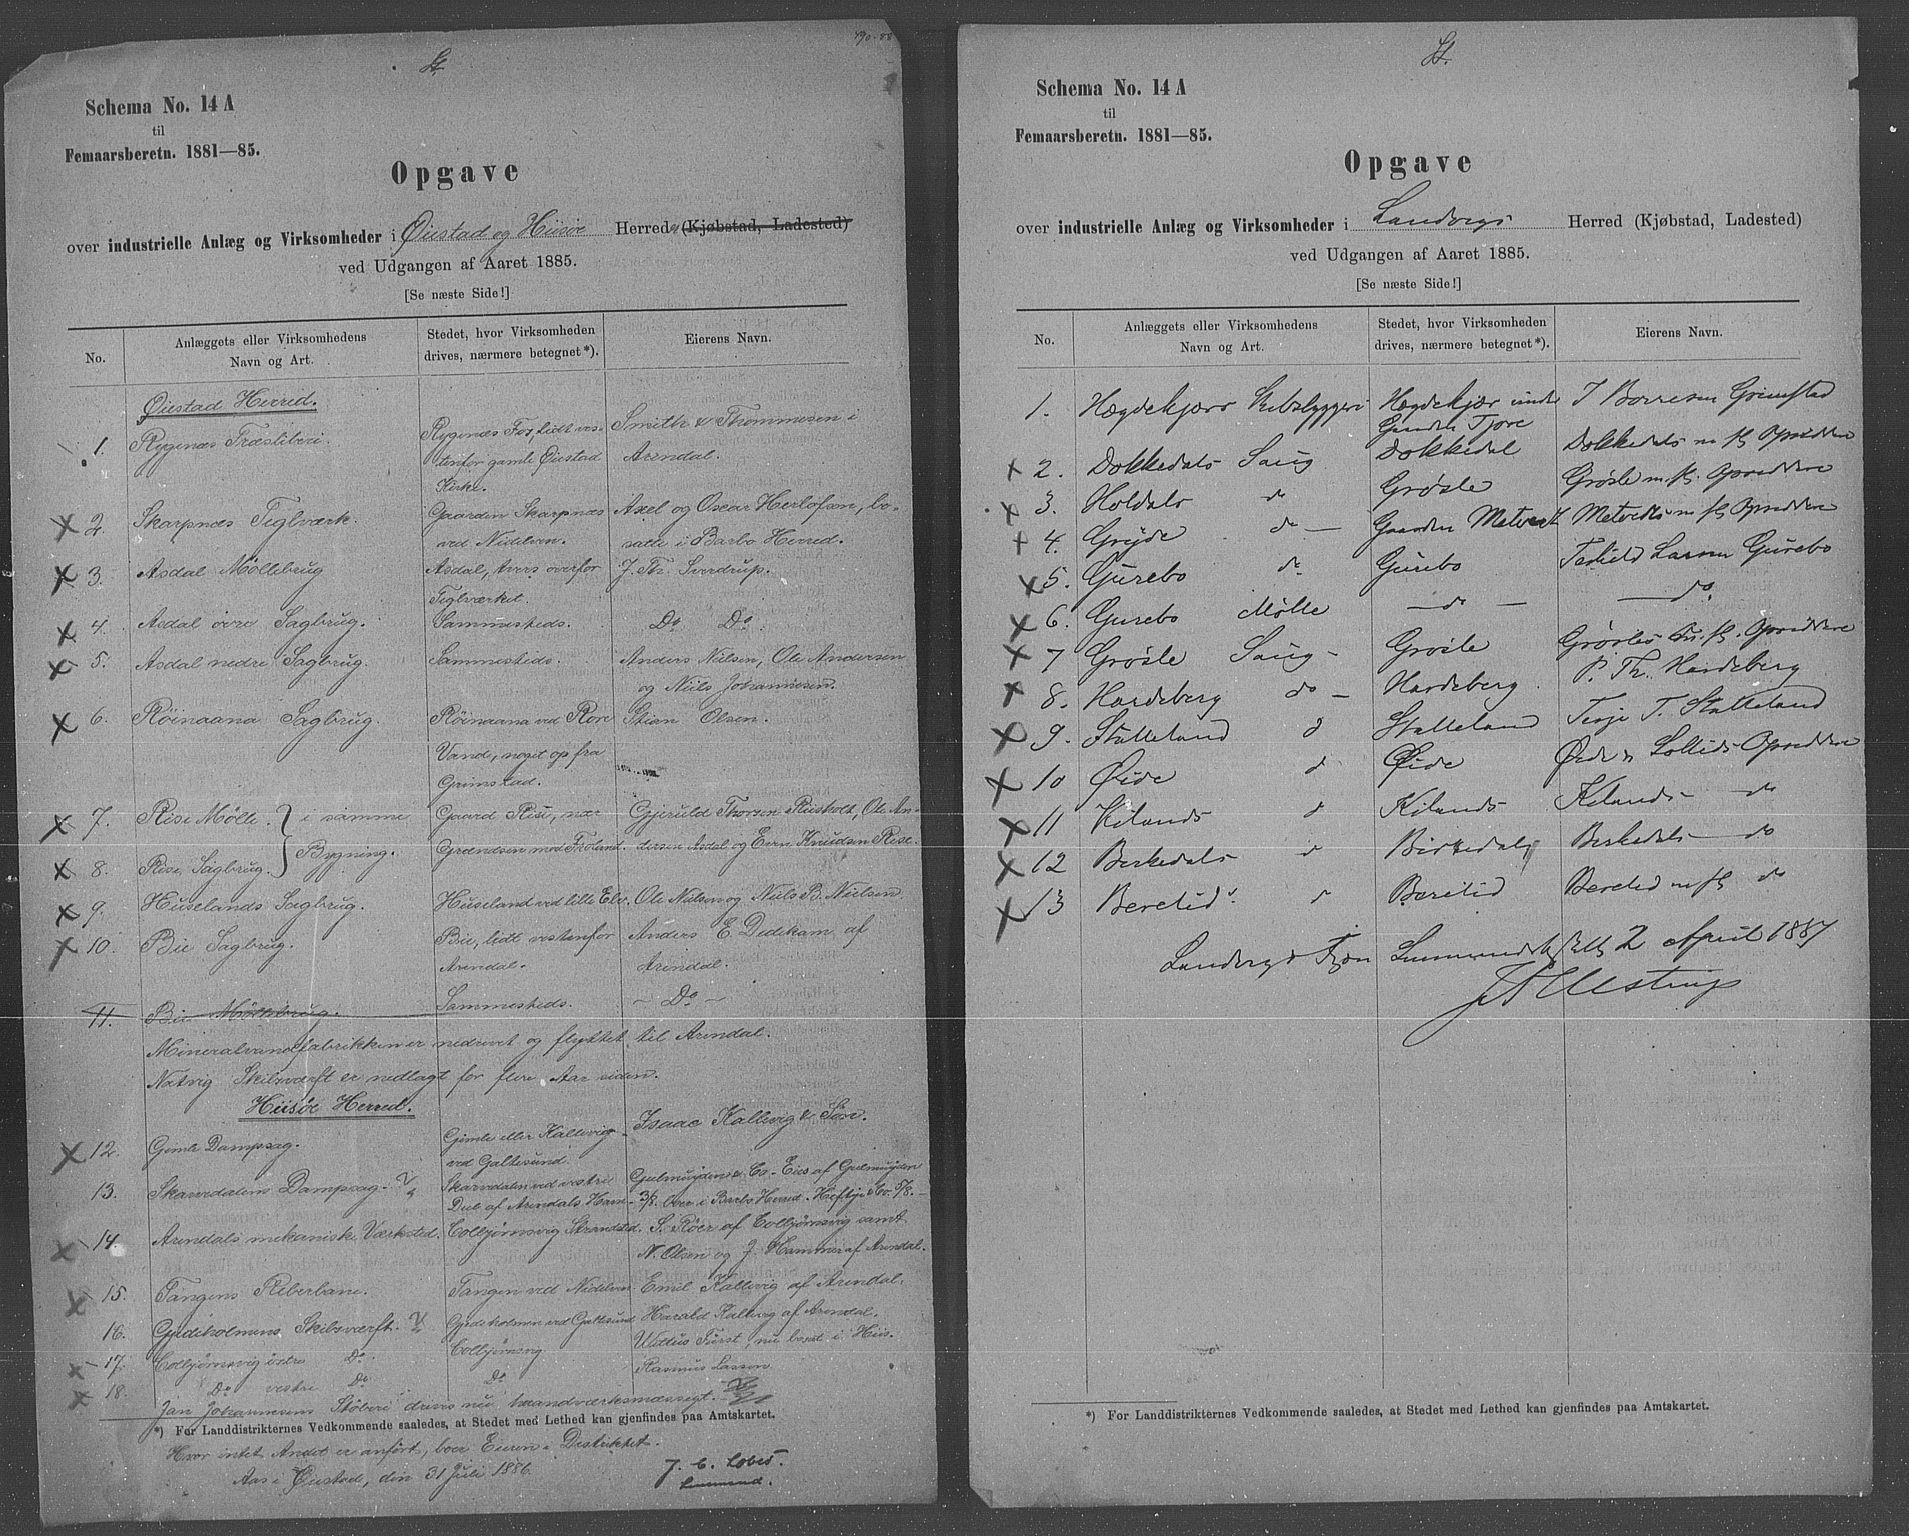 190-88
Schema No. 14 A
til
Femaarsberetn. 1881—85.
Opgave
over industrielle Anlæg og Virksomheder i Øiestad og Hiisøe Herred (Kjøbstad, Ladested)
ved Udgangen af Aaret 1885.
[Se næste Side!]
No. Anlæggets eller Virksomhedens Navn og Art. Stedet, hvor Virksomheden drives, nærmere betegnet*). Eierens Navn.
Øiestad Herred.
1. Rygenæs Træsliberi. Rygenæs Fos, lidt ves- Smith & Thommesen i
tenfor gamle Øiestad Arendal.
Kirke.
2. Skarpnæs Teglværk. Gaarden Skarpnæs Axel og Oscar Herlofsen, bo-
ved Nidelven. satte i Barbo Herred.
3. Asdal Møllebrug Asdal, tvers overfor J. Th. Sverdrup.
Teglværket.
4. Asdal øvre Sagbrug. Sammesteds. Do Do
5. Asdal nedre Sagbrug. Sammesteds. Anders Nielsen, Ole Andersen
og Niels Johannesen.
6. Røinaana Sagbrug. Røinaana ved Rore Stian Olsen.
Vand, noget op fra
Grimstad.
7. Rise Mølle. } i samme Gaard Rise, nær Gjeruld Thorsen Riisholt, Ole An-
8. Rise Sagbrug. } Bygning. Grændsen mod Froland. dersen Asdal og Even Knudsen Rise.
9. Huselands Sagbrug. Huseland ved lille Elv. Ole Nielsen og Niels B. Nielsen
10. Bie Sagbrug. Bie, lidt vestenfor Anders E. Dedekam af
Arendal. Arendal.
11. Bie Møllebrug. Sammesteds. – Do –
Mineralvandfabrikken er nedrevet og flyttet til Arendal.
Natvig Skibsværft er nedlagt for flere Aar siden.
Hiisøe Herred.
12. Gimle Dampsag. Gimle eller Kallevig Isaac Kallevig & Søn.
ved Galtesund.
13. Skarvedalens Dampsag. Skarvedalen ved vestre Gulmuyden & Co- Eies af Gulmuyden
Del af Arendals Havn- 3/8. boer i Barbo Herred. Heftye & Co. 5/8.
14. Arendals mekaniske Værksted. Colbjørnsvig Strandsted. S. Röer af Colbjørnsvig samt
N. Olsen og J. Hammer af Arendal.
15. Tangens Reberbane. Tangen ved Nidelven Emil Kallevig af Arendal.
16. Gjedeholmens Skibsværft. Gjedeholmen ved Galtesund Harald Kallevig af Arendal.
17. Colbjørnsvig østre Do. Colbjørnsvig Fürst, nu bosat i Hiis.
18. Do vestre Do. Do Rasmus Lassen
Jan Johannesens Støberi drives nu haandværksmæssigt.
*) For Landdistrikternes Vedkommende saaledes, at Stedet med Lethed kan gjenfindes paa Amtskartet.
Hvor intet Andet er anført, boer Eieren i Distriktet.
Aas i Øiestad, den 31 Juli 1886.
Lensmand.
Schema No. 14 A
til
Femaarsberetn. 1881—85.
Opgave
over industrielle Anlæg og Virksomheder i Landvigs Herred (Kjøbstad, Ladested)
ved Udgangen af Aaret 1885.
[Se næste Side!]
No. Anlæggets eller Virksomhedens Navn og Art. Stedet, hvor Virksomheden drives, nærmere betegnet*). Eierens Navn.
1. Hægdekjærs Skibsbyggeri Hægdekjær under J Borresen Grimstad
Gaarden Tjore
2. Dokkedals Saug Dokkedal Dokkedals m fl Opsiddere
3. Holdals do Grøsle Grøsle m. fl. Opsiddere
4. Grejde do – Gaarden Metvedt Metvedts m fl Opsiddere
5. Gurebo do Gurebo Larsen Gurebo
6. Gurebo Mølle – do – – do
7 Grøsle Saug – Grøsle Grøsles m. fl. Opsiddere
8. Hardeberg do – Hardeberg P. Th. Hardeberg
9. Stalleland d Stalleland Terje T. Stalleland
10 Øide d Øide Opsiddere
11 Kilands d Kilands Kilands – do
12 Berkedals d Birkedals Berkedals – do
13 Beretid d Beretid Beretid m fl do
Landvigs 2 April 1887
*) For Landdistrikternes Vedkommende saaledes, at Stedet med Lethed kan gjenfindes paa Amtskartet.